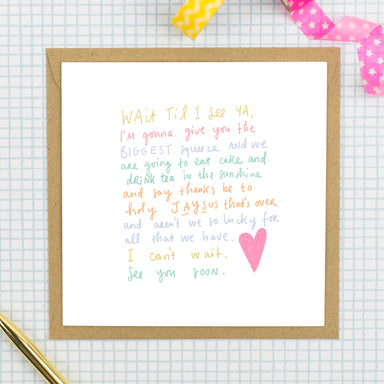 WAit Til I See YA,
I'm gonna give you the
BIGGEST squeeze AND we
are going to eat cake and
dRiNK tea in the sunshine
and say thanks be to
holy JAYSUS that's over
and aren't we so lucky for
all that we have.
I can't wait.
See you soon.